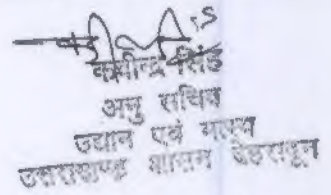 सिंह
अनु सचिव
उद्यान एवं
उत्तराखण्ड शासन देहरादून